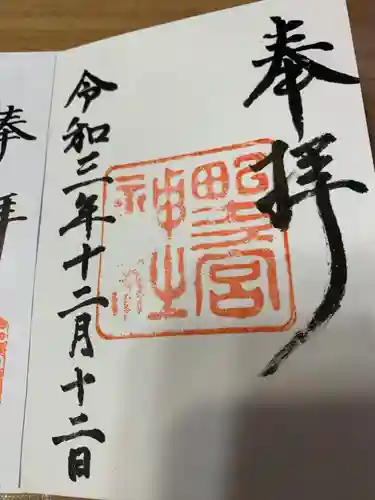 奉拝
野宮
神社
令和三年十二月十二日
奉拝